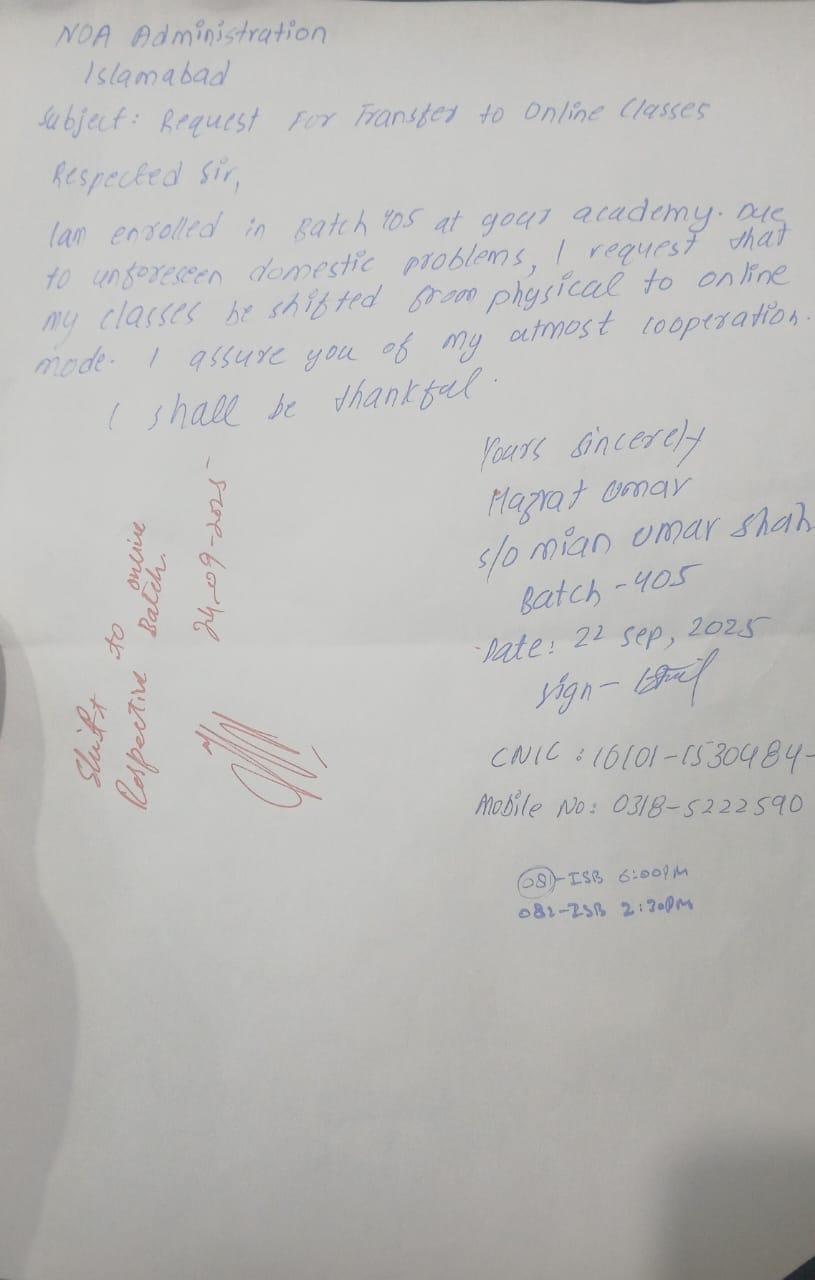 NOA Administration
Islamabad
Subject: Request For Transfer to Online Classes
Respected Sir,
I am enrolled in Batch 405 at your academy. Due
to unforeseen domestic problems, I request that
my classes be shifted from physical to online
mode. I assure you of my atmost cooperation.
I shall be thankful.
Yours Sincerely
Hazrat Umar
s/o Mian Umar Shah
Batch - 405
Date: 22 Sep, 2025
Sign -
CNIC : 16101-1530484-
Mobile No: 0318-5222590
081-ISB 6:00PM
082-ISB 2:30PM
Shift to online
Respective Batch.
24-09-2025